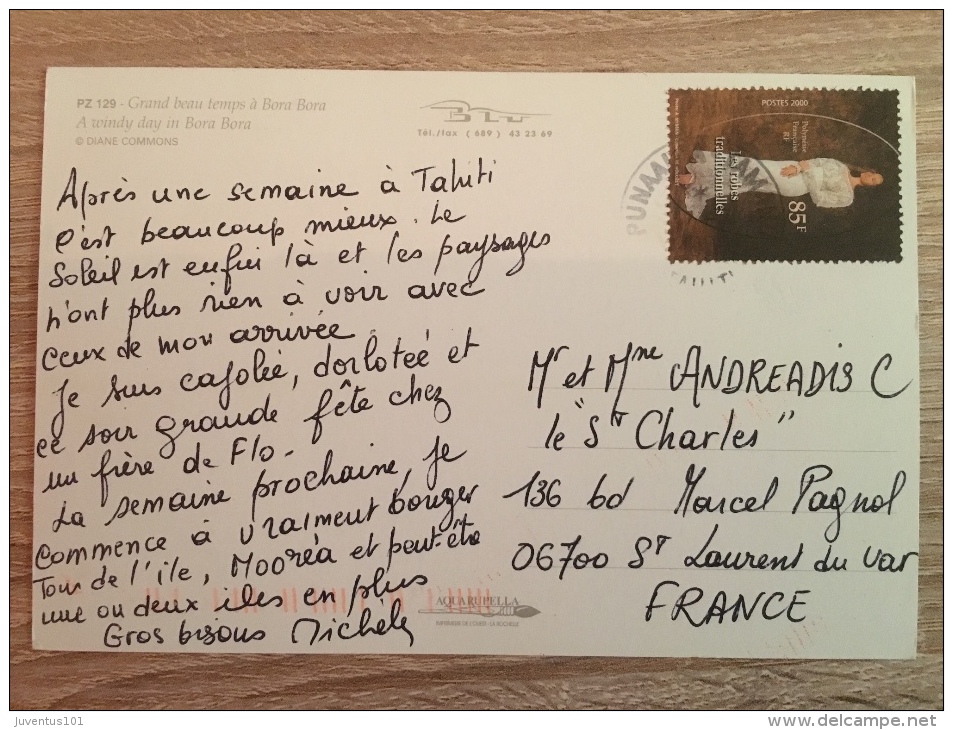 PZ 129 - Grand beau temps à Bora Bora
A windy day in Bora Bora
© DIANE COMMONS
Tél./fax ( 689 ) 43 23 69
POSTES 2000
Polynésie
Française
RF
Les robes
traditionnelles
85F
Après une semaine à Tahiti
c'est beaucoup mieux. Le
Soleil est enfin là et les paysages
n'ont plus rien à voir avec
ceux de mon arrivée.
Je suis cajolée, dorlotée et
ce soir grande fête chez
un frère de Flo.
La semaine prochaine, je
commence à vraiment bouger
Tour de l'île, Mooréa et peut-être
une ou deux iles en plus
Gros bisous Michèle
Mr et Mme ANDREADIS C
le "St Charles"
136 bd Marcel Pagnol
06700 St Laurent du Var
FRANCE
AQUARUPELLA
IMPRIMERIE DE L'OUEST - LA ROCHELLE
Juventus101
delcampe.net